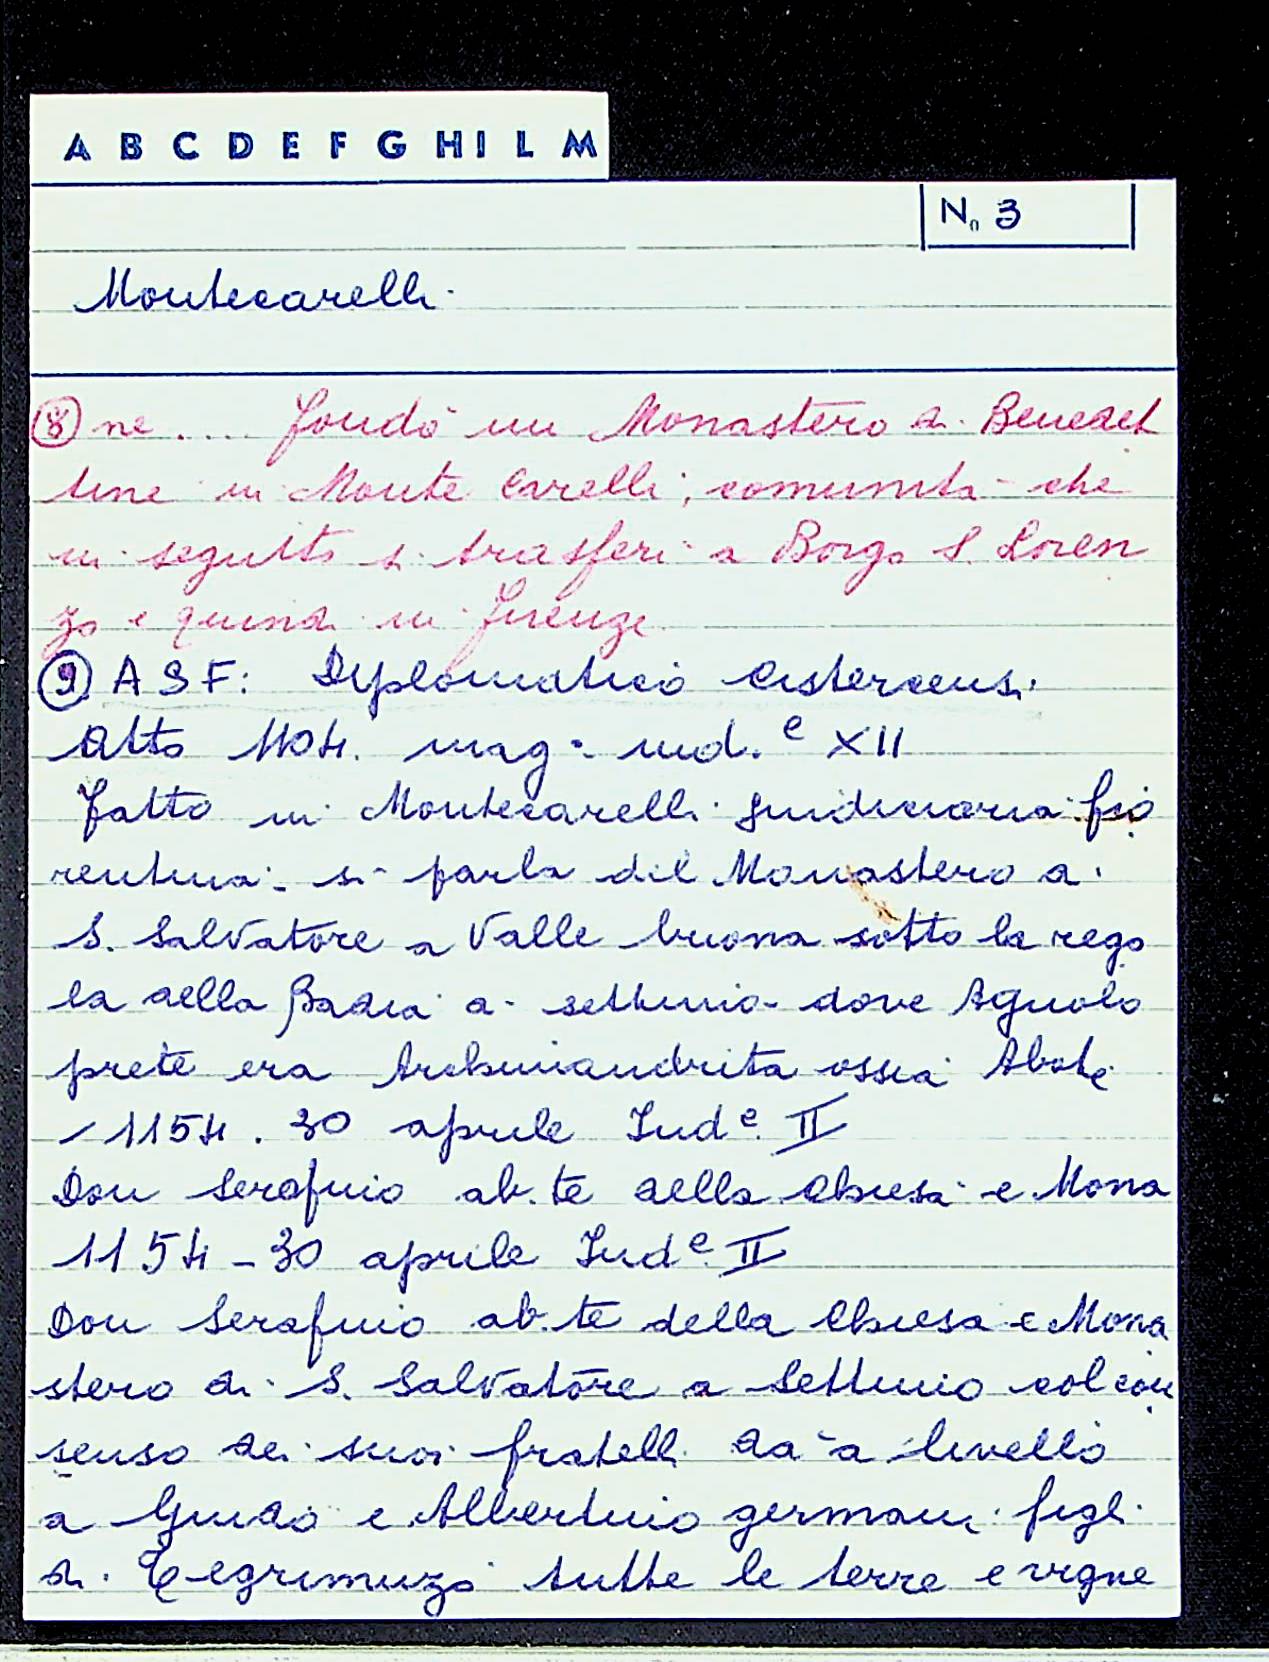 A B C D E F G H I L M
N. 3
Montecarelli
⑧ ne .... fondò un Monastero di Benedet
tine in Monte Carelli; comunità che
in seguito si trasferì a Borgo S. Loren
zo e quindi in Firenze
⑨ A S F: Diplomatico Cistercensi
Atto 1104. mag. ind.e XII
Fatto in Montecarelli giudiciaria fio
rentina - si parla del Monastero di
S. Salvatore a Valle buona sotto la rego
la della Badia a settimo - dove Agnolo
prete era Archimandrita ossia Abate
- 1154. 30 aprile Ind.e II
Don Serafino ab.te della Chiesa e Mona
1154 - 30 aprile Ind.e II
Don Serafino ab.te della Chiesa e Mona
stero di S. Salvatore a Settimo col con
senso dei suoi fratelli dà a livello
a Guido e Albertino germani figli
di Tegrimuzo tutte le terre e vigne